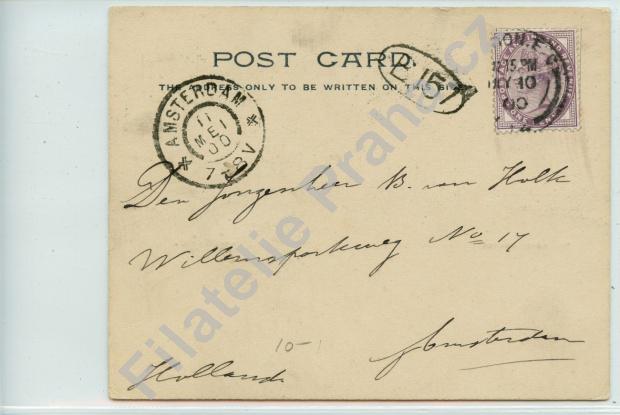 POST CARD
THE ADDRESS ONLY TO BE WRITTEN ON THIS SIDE
AMSTERDAM
11
MEI
00
7-8V
15 PM
MY 10
00
Den Jongenheer B. van Holk
Willemsparkweg No 17
Amsterdam
10-
Holland
Filatelie Praha.cz